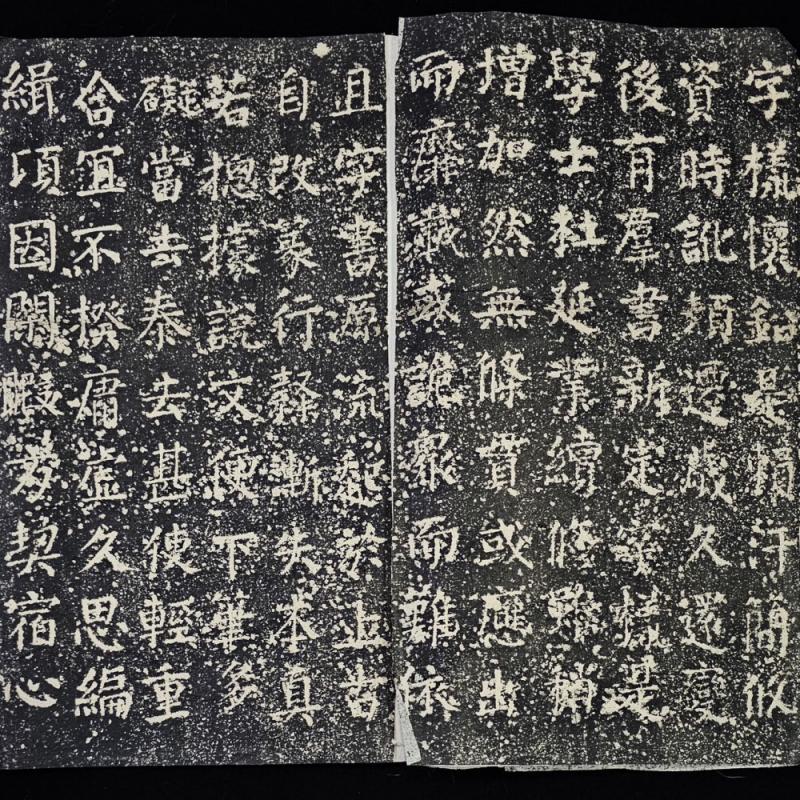 字樣懷鉛是賴汗簡攸
資時訛頓遷歲久還變
後有羣書新定字樣是
學士杜延業續修雖稍
增加然無條貫或應出
而靡載或詭衆而難依
且字書源流起於上古
自改篆行隸漸失本真
若揔據說文便下筆多
礙當去泰去甚使輕重
合宜不揆庸虛久思編
緝頃因閑暇方契宿心